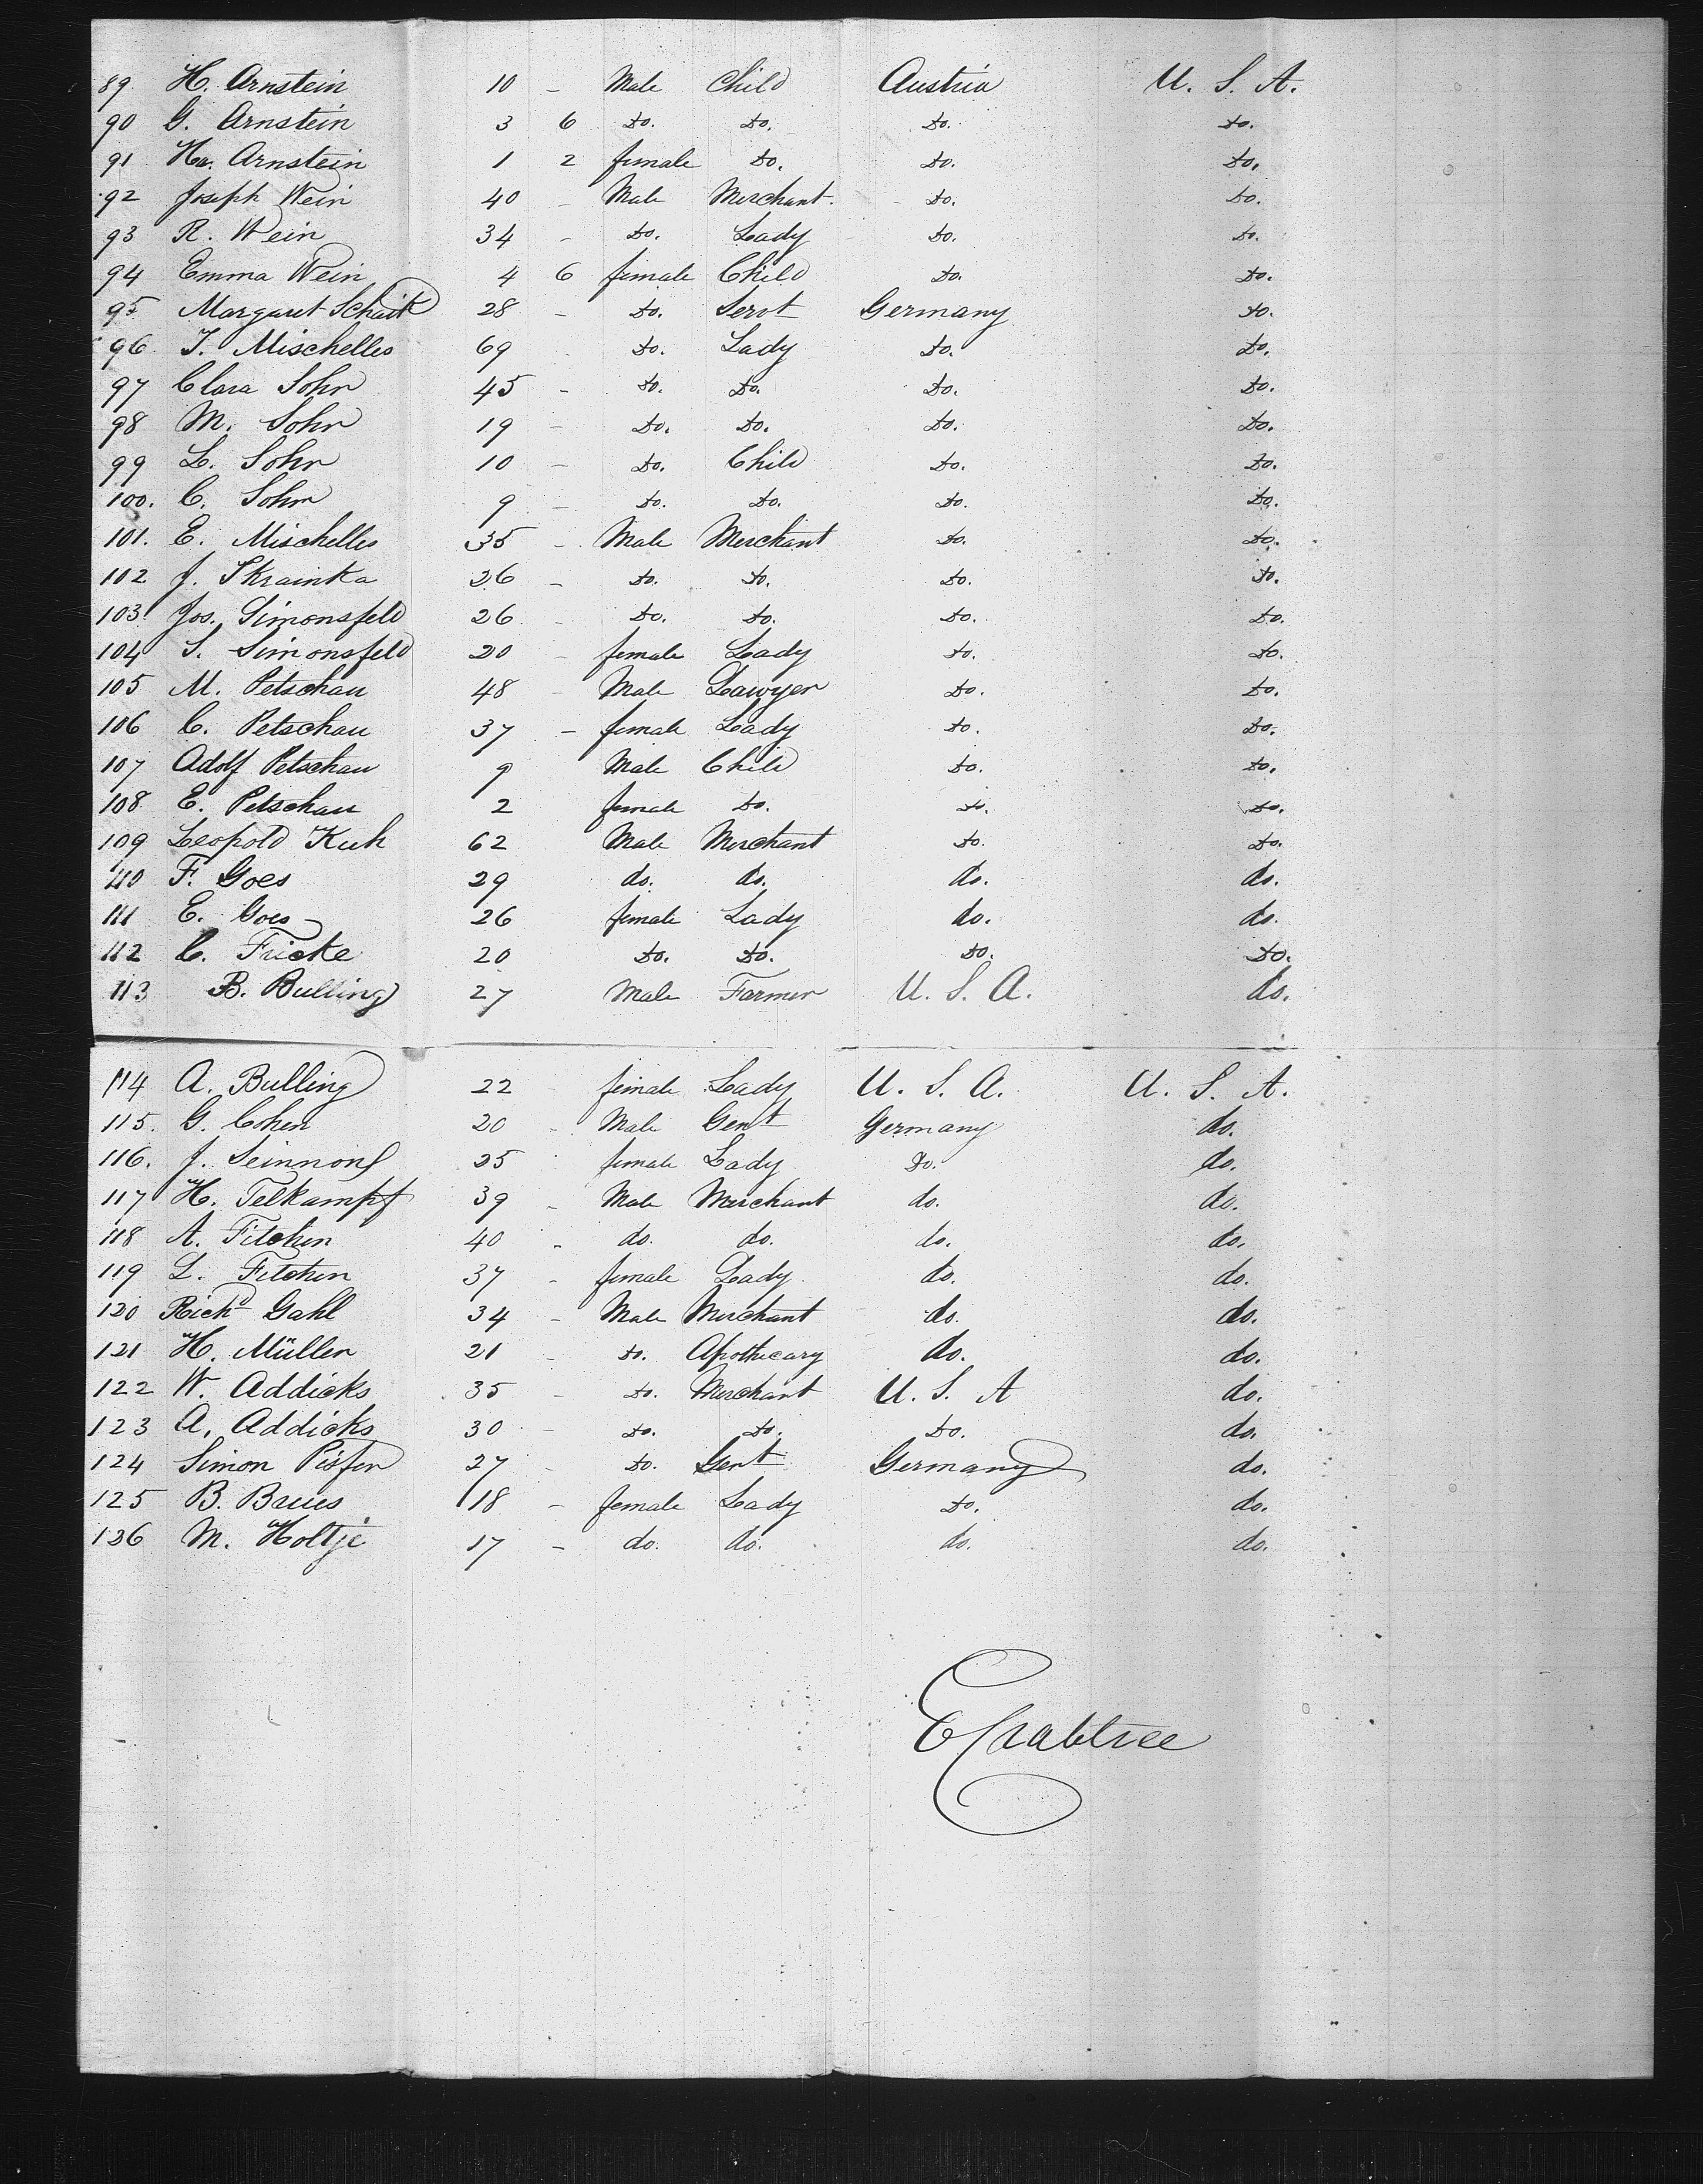 89 H. Arnstein 10 - Male Child Austria U. S. A.
90 G. Arnstein 3 6 do. do. do. do.
91 Ha. Arnstein 1 2 female do. do. do.
92 Joseph Wein 40 - Male Merchant. do. do.
93 R. Wein 34 - do. Lady do. do.
94 Emma Wein 4 6 female Child do. do.
95 Margaret 28 - do. Servt Germany do.
96 J. Mischelles 69 do. Lady do. do.
97 Clara Sohr 45 - do. do. do. do.
98 M. Sohr 19 - do. do. do. do.
99 L. Sohr 10 - do. Child do. do.
100. C. Sohr 9 - do. do. do. do.
101. E. Mischelles 35 - Male Merchant do. do.
102 J. Skrainka 26 - do. do. do. do.
103. Jos. Simonsfeld 26 do. do. do. do.
104 S. Simonsfeld 20 - female Lady do. do.
105 M. Petschau 48 - Male Lawyer do. do.
106 C. Petschau 37 - female Lady do. do.
107 Adolf Petschau 9 Male Child do. do.
108 E. Petschau 2 female do. do. do.
109 Leopold Kuh 62 Male Merchant do. do.
110 F. Goes 29 do. do. do. do.
111 E. Goes 26 female Lady do. do.
112 C. Fricke 20 do. do. do. do.
113 B. Bulling 27 Male Farmer U. S. A. do.
114 A. Bulling 22 female Lady U. S. A. U. S. A.
115. G. Cohen 20 - Male Gent Germany do.
116. J. 25 female Lady do. do.
117 H. Telkampf 39 - Male Merchant do. do.
118 A. Fitchen 40 - do. do. do. do.
119 L. Fitchen 37 - female Lady do. do.
120 Richd Gahl 34 - Male Merchant do. do.
121 H. Müller 21 - do. Apothecary do. do.
122 W. Addicks 35 - do. Merchant U. S. A do.
123 A. Addicks 30 - do. do. do. do.
124 Simon 27 - do. Gent Germany do.
125 B. Brues 18 - female Lady do. do.
126 M. Holtje 17 - do. do. do. do.
E Crabtree